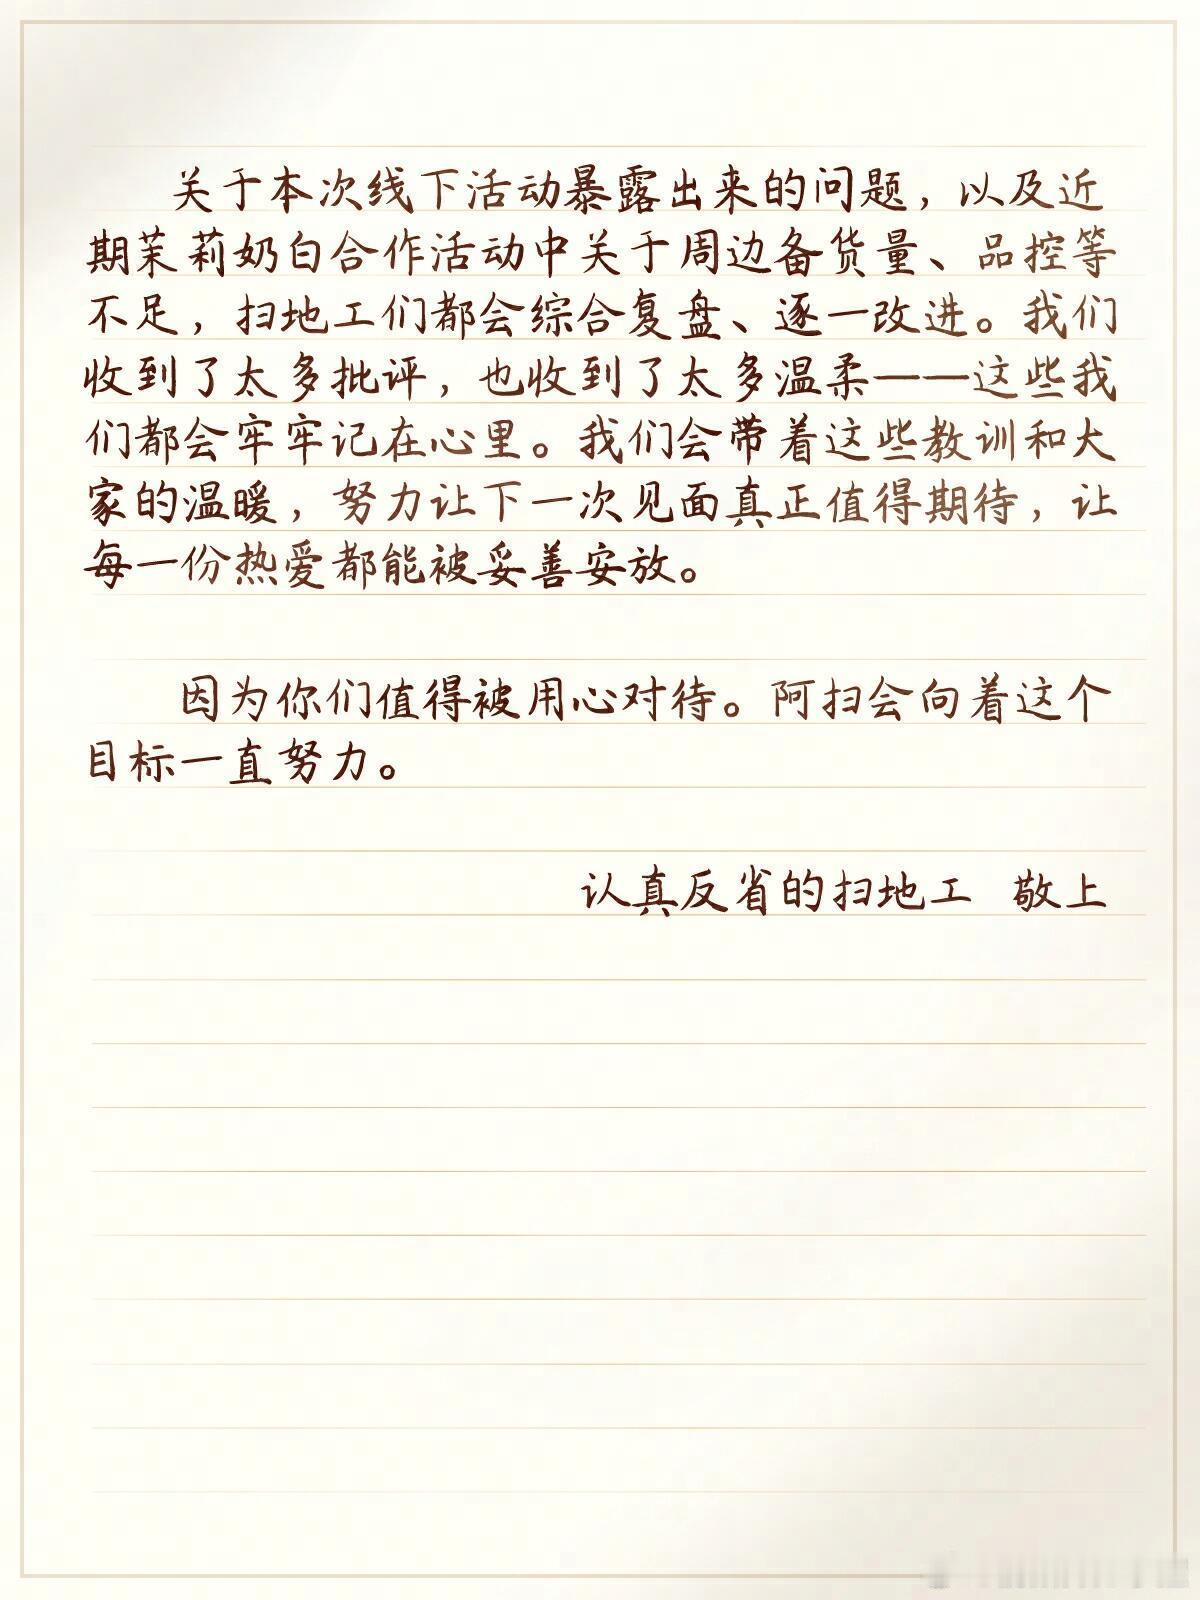 关于本次线下活动暴露出来的问题，以及近
期茉莉奶白合作活动中关于周边备货量、品控等
不足，扫地工们都会综合复盘、逐一改进。我们
收到了太多批评，也收到了太多温柔——这些我
们都会牢牢记在心里。我们会带着这些教训和大
家的温暖，努力让下一次见面真正值得期待，让
每一份热爱都能被妥善安放。
因为你们值得被用心对待。阿扫会向着这个
目标一直努力。
认真反省的扫地工 敬上